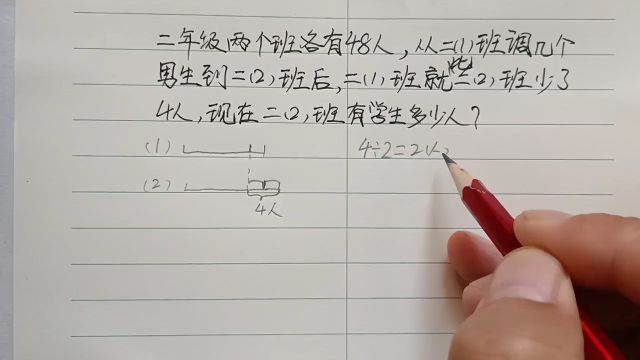 二年级两个班各有48人，从二(1)班调几个
男生到二(2)班后，二(1)班就比二(2)班少了
4人，现在二(2)班有学生多少人？
(1) 4÷2=2(人)
(2)
4人